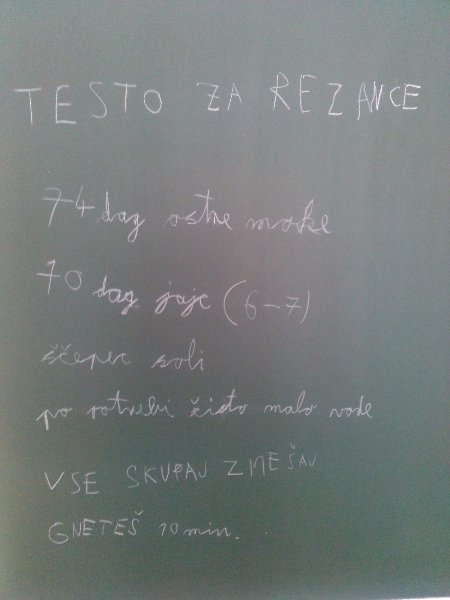 TESTO ZA REZANCE
74 dag ostre moke
70 dag jajc (6-7)
ščepec soli
po potrebi čisto malo vode
VSE SKUPAJ ZMEŠAJ
GNETEŠ 10 min.